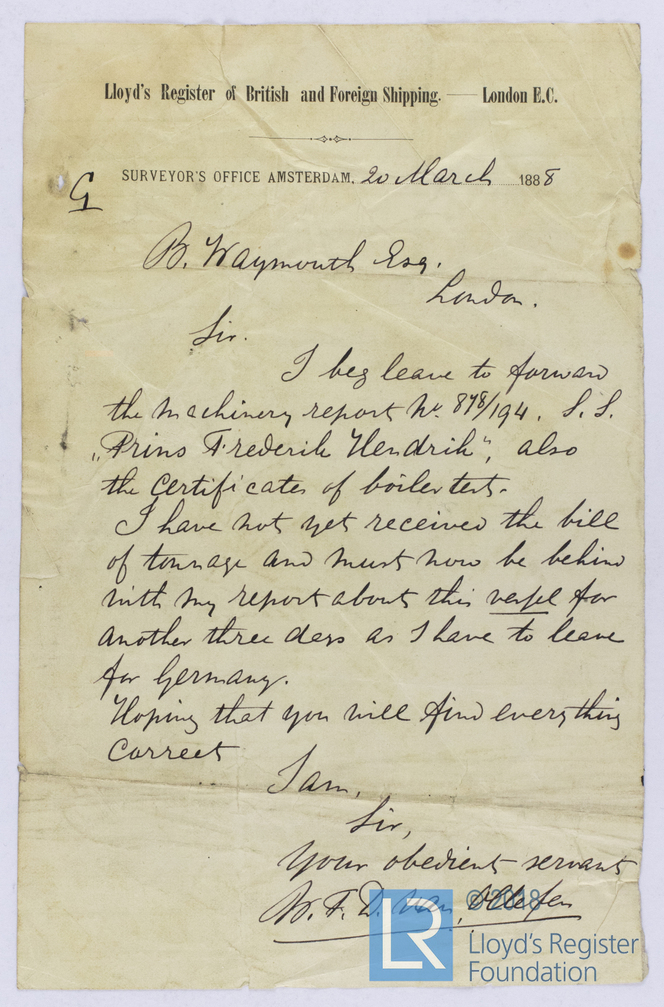 Lloyd's Register of British and Foreign Shipping. — London E.C.
SURVEYOR'S OFFICE AMSTERDAM, 20 March 1888
G
B. Waymouth Esq.
London.
Sir.
I beg leave to forward
the machinery report No. 878/194. S.S.
„Prins Frederik Hendrik", also
the certificates of boilertest.
I have not yet received the bill
of tonnage and must now be behind
with my report about this vessel for
another three days as I have to leave
for Germany.
Hoping that you will find everything
correct
I am,
Sir,
Your obedient servant
W. F. D. Van
© 2018
LR
Lloyd's Register
Foundation